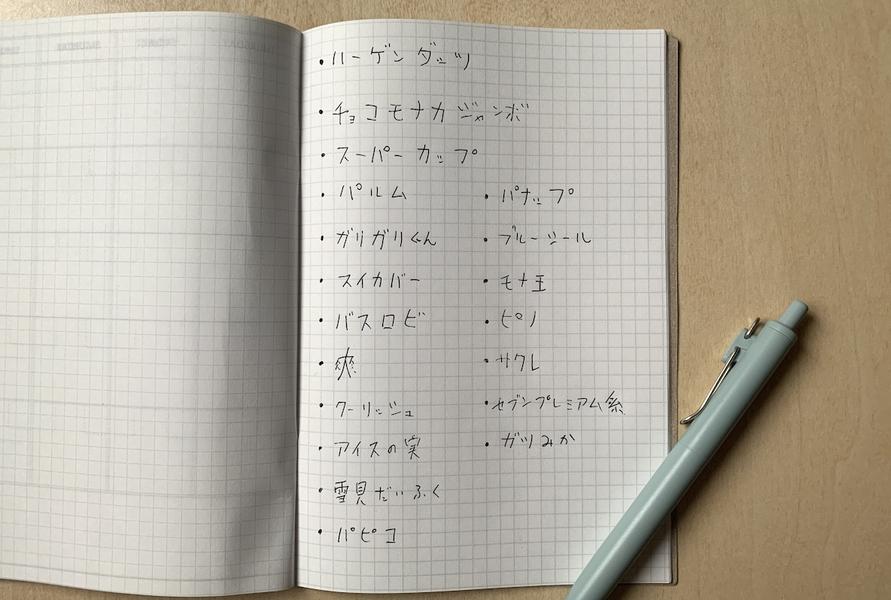 ・ハーゲンダッツ
・チョコモナカジャンボ
・スーパーカップ
・パルム
・ガリガリくん
・スイカバー
・バスロビ
・爽
・クーリッシュ
・アイスの実
・雪見だいふく
・パピコ
・パナップ
・ブルーシール
・モナ王
・ピノ
・サクレ
・セブンプレミアム系
・ガツみか